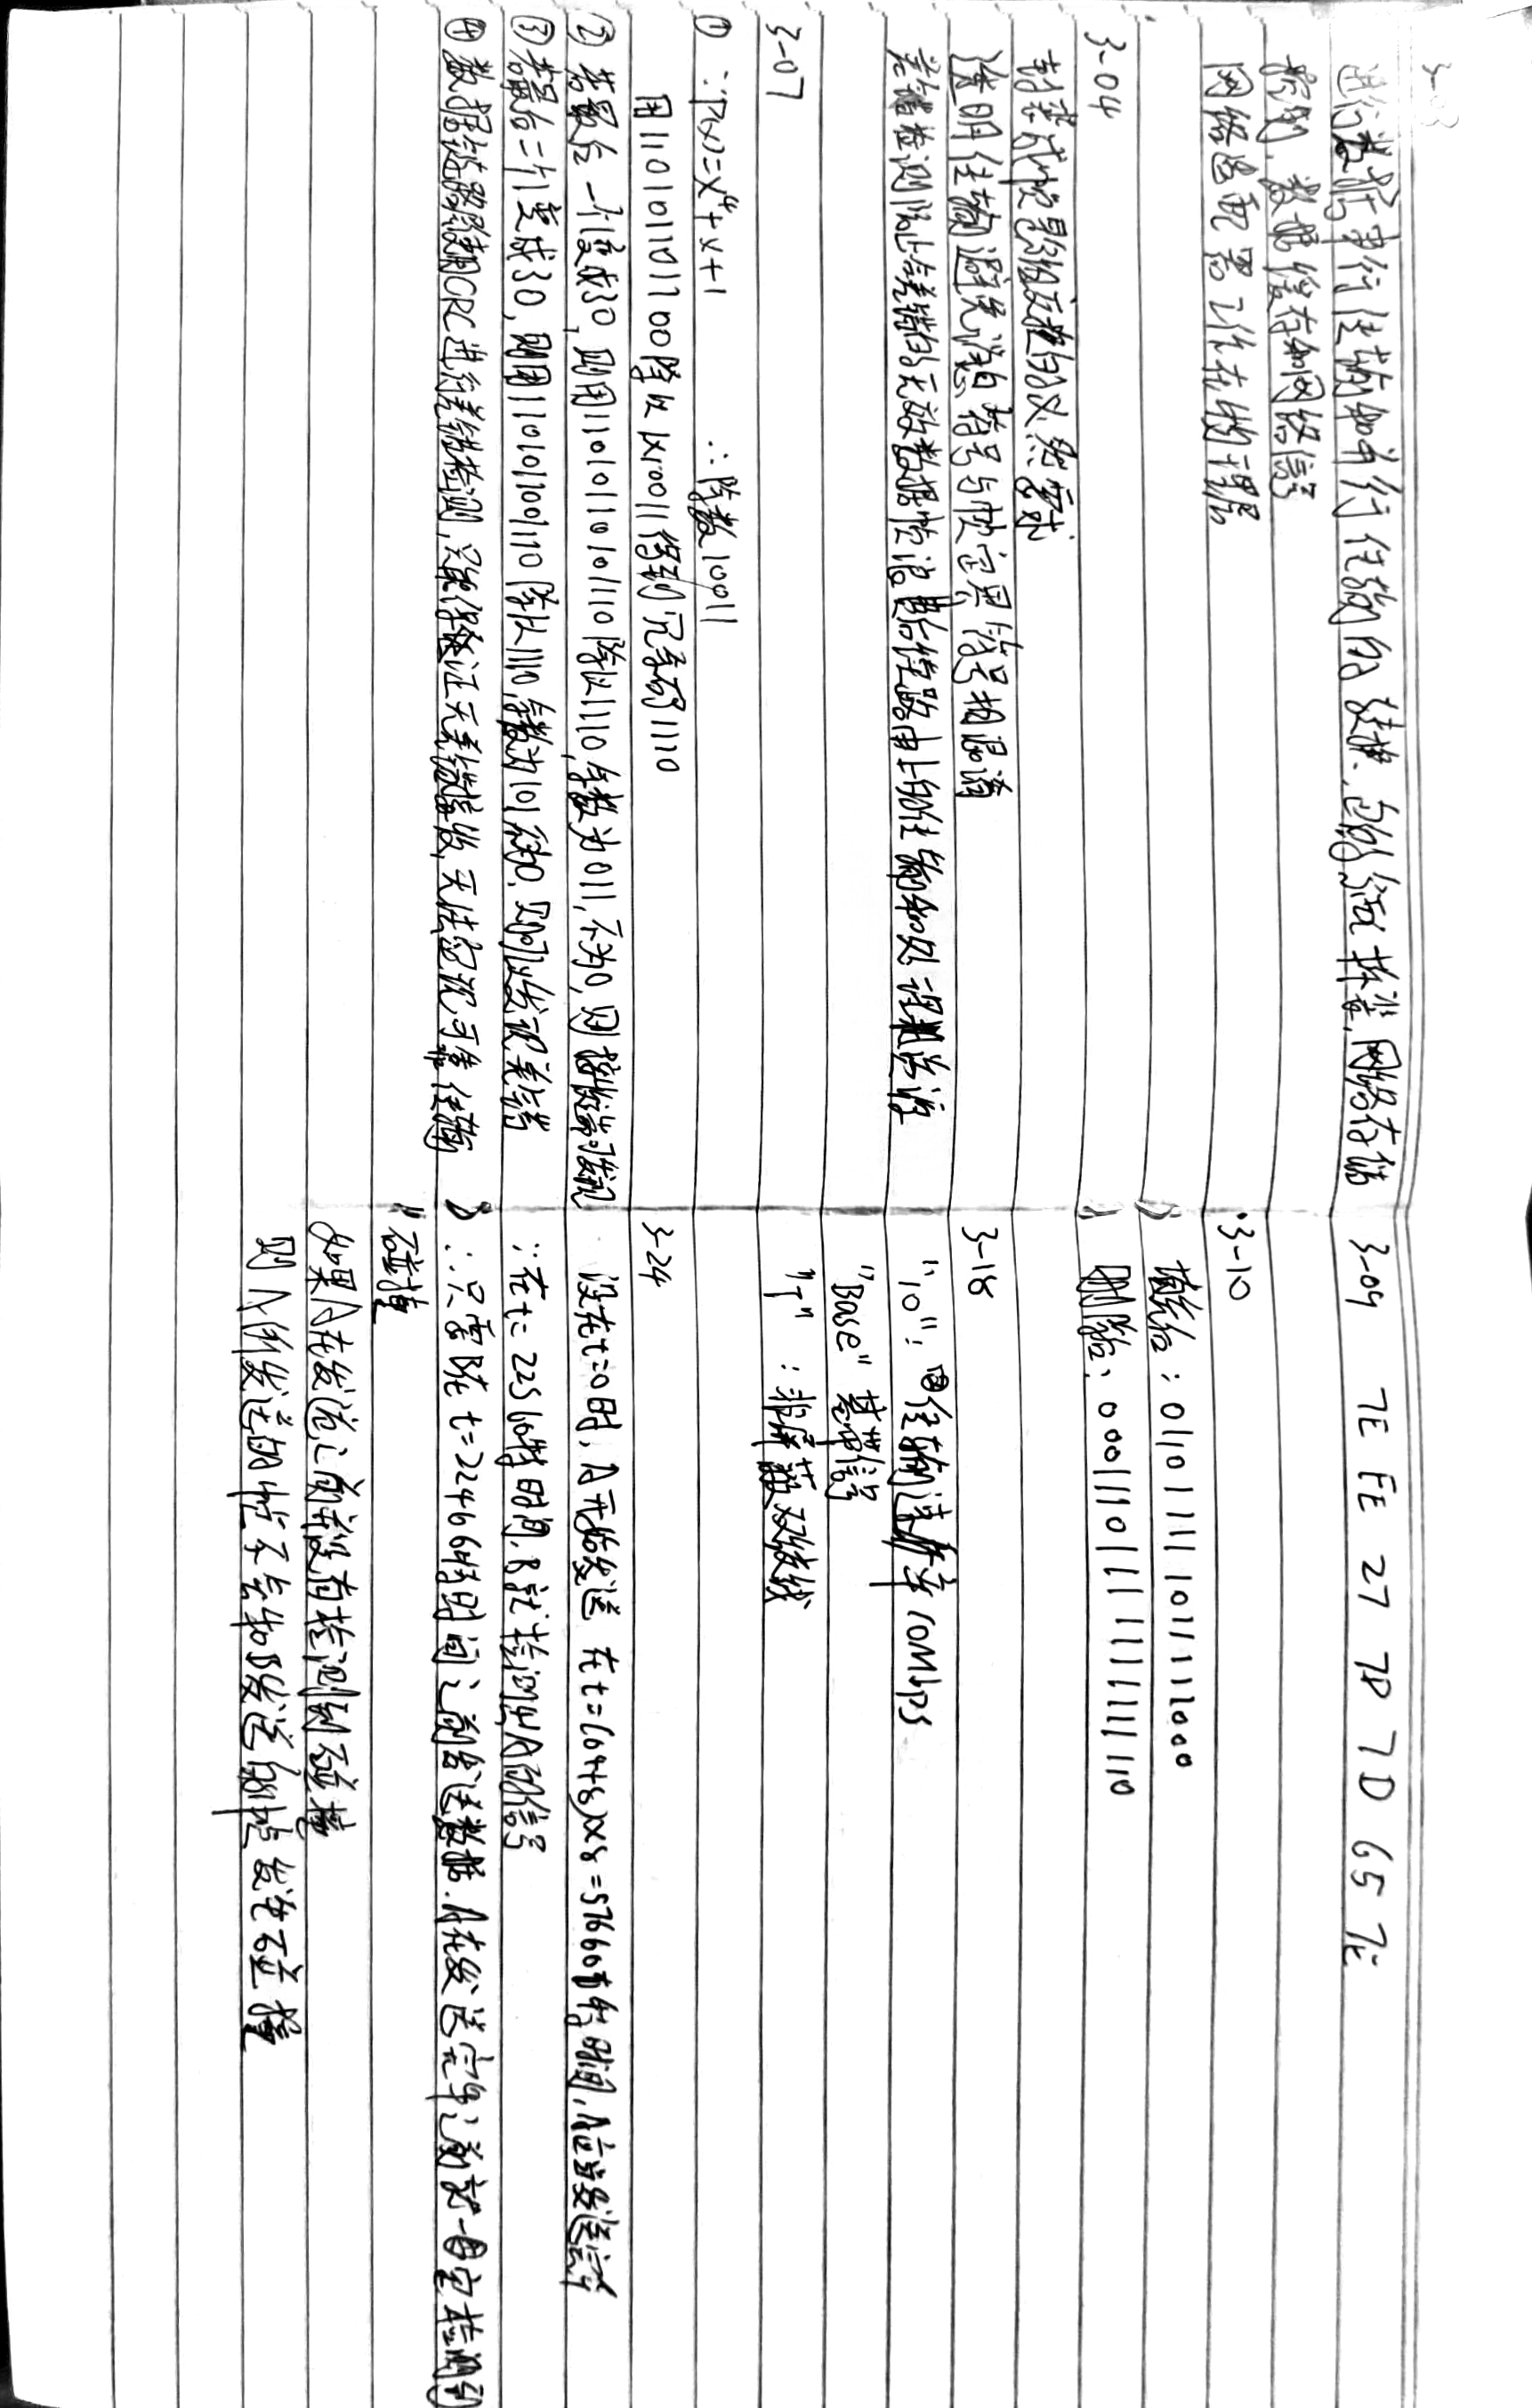 3-03
进行数据串行传输和并行传输的转换、包的封装拆装,网络存储
数据缓存和网络信号
网络适配器工作在物理层
3-04
封装成帧是分组交换的必然要求
透明传输避免消息符号与帧定界符号相混淆
差错检测防止差错的无效数据帧浪费后续路由上的传输和处理
3-07
① ∵P(x)=x⁴+x+1 ∴除数10011
用11010110110000除以10011得到冗余码1110
② 若最后一个1变成0,则用11010110101110除以 余数为011,不为0,则接收端可发现
③若最后二个1变成0,则用11010110011110除以 余数为101 不为0,则可以发现差错
④数据链路层CRC进行差错检测,只能保证无差错接收,无法实现可靠传输
3-09 7E FE 27 7D 7D 65 7E
3-10
填给:011011111011111000
删除:000111011111 11111 110
3-18
"10":传输速率10Mbps
"Base"基带信号
"T":非屏蔽双绞线
3-24
设在t=0时,A开始发送 在t=(64+8)×8=576比特时间,A应当发送完毕
∵在t=225比特时间,B就检测出A的信号
∵只需B在t=224比特时间之前发送数据.A在发送完毕之前就一定检测到
碰撞
如果A在发送之前没有检测到碰撞
则A所发送的帧不会和B发送的帧发生碰撞